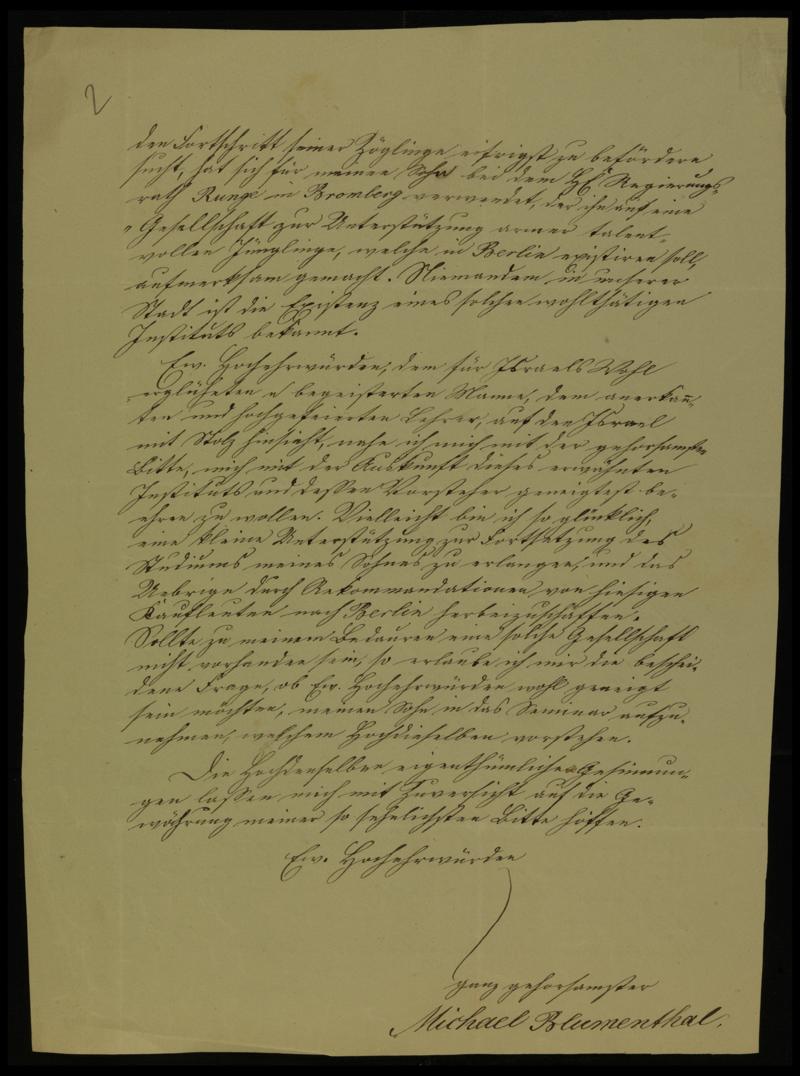 2
den Fortschritt seiner Zöglinge eifrigst zu befördern
sucht, hat sich für meinen Sohn bei dem H. Regierungs-
rath Runge in Bromberg verwendet, der ihn auf eine
"Gesellschaft zur Unterstützung armer talent-
vollen Jünglinge, welche in Berlin existiren soll,
aufmerksam gemacht. Niemandem in unserer
Stadt ist die Existenz eines solchen wohlthätigen
Instituts bekannt.
Ew. Hochehrwürden, dem für Israels Wohl
erglühten u begeisterten Manne, dem anerkañ-
ten und hochgefeierten Lehrer, auf den Israel
mit Stolz hinsieht, nahe ich mich mit der gehorsamsten
Bitte, mich mit der Auskunft dieses erwähnten
Instituts und dessen Vorsteher geneigtest be-
ehren zu wollen. Vielleicht bin ich so glücklich,
eine kleine Unterstützung zur Fortsetzung des
Studiums meines Sohnes zu erlangen, und das
Uebrige durch Rekommandationen von hiesigen
Kaufleuten nach Berlin herbeizuschaffen.
Sollte zu meinem Bedauren eine solche Gesellschaft
nicht vorhanden sein, so erlaube ich mir die beschei-
dene Frage, ob Ew. Hochehrwürden wohl geneigt
sein möchten, meinen Sohn in das Seminar aufzu-
nehmen, welchem Hochdieselben vorstehen.
Die Hochdenselben eigenthümlichen Gesinnun-
gen lassen mich mit Zuversicht auf die Ge-
währung meiner so sehnlichsten Bitte hoffen.
Ew. Hochehrwürden
ganz gehorsamster
Michael Blumenthal.